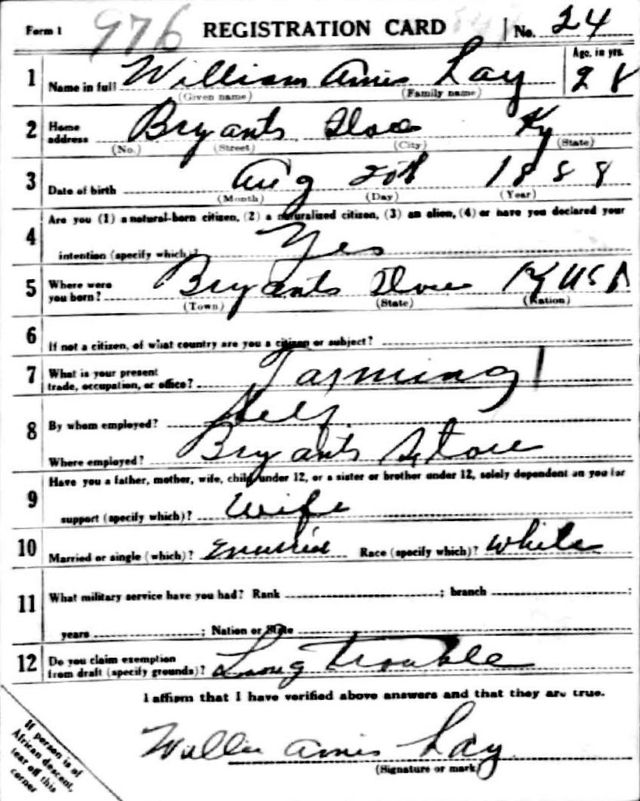 Form 1 976 REGISTRATION CARD No. 24
1 Name in full William Amis Lay Age, in yrs. 28
(Given name) (Family name)
2 Home address Bryants Store Ky
(No.) (Street) (City) (State)
3 Date of birth Aug 20th 1888
(Month) (Day) (Year)
4 Are you (1) a natural-born citizen, (2) a naturalized citizen, (3) an alien, (4) or have you declared your
intention (specify which)? Yes
5 Where were you born? Bryants Store Ky USA
(Town) (State) (Nation)
6 If not a citizen, of what country are you a citizen or subject?
7 What is your present trade, occupation, or office? Farming
8 By whom employed? Self
Where employed? Bryants Store
9 Have you a father, mother, wife, child under 12, or a sister or brother under 12, solely dependent on you for
support (specify which)? Wife
10 Married or single (which)? Married Race (specify which)? White
11 What military service have you had? Rank ; branch ;
years ; Nation or State
12 Do you claim exemption from draft (specify grounds)? Lung trouble
I affirm that I have verified above answers and that they are true.
Willie Amis Lay
(Signature or mark)
If person is of
African descent,
tear off this
corner